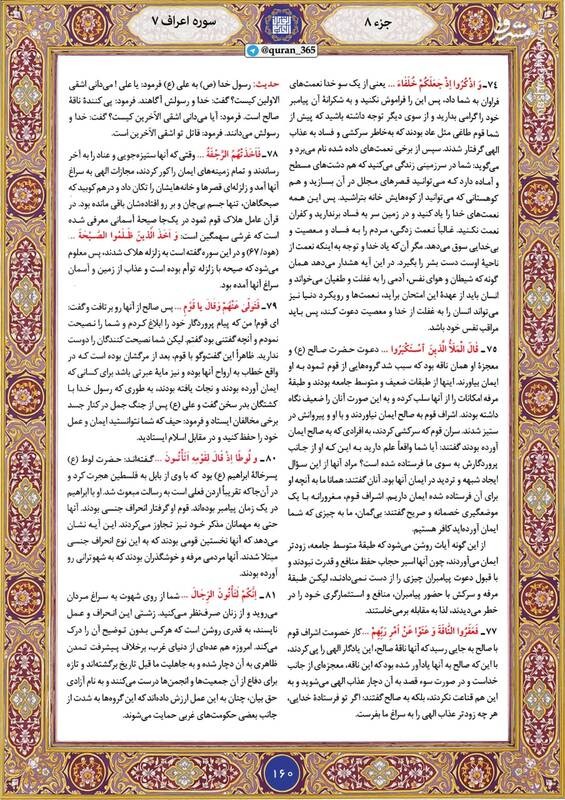 جزء ۸
سوره اعراف ۷
@quran_365
مشرق
۷۴ـ وَ اذْكُرُوا إِذْ جَعَلَكُمْ خُلَفَاءَ ... یعنی از یک سو خدا نعمت‌های
فراوان به شما داد، پس این را فراموش نکنید و به شکرانهٔ آن پیامبر
خود را گرامی بدارید و از سوی دیگر توجه داشته باشید که پیش از
شما قوم طاغی مثل عاد بودند که به‌خاطر سرکشی و فساد به عذاب
الهی گرفتار شدند. سپس از برخی نعمت‌های داده شده نام می‌برد و
می‌گوید: شما در سرزمینی زندگی می‌کنید که هم دشت‌های مسطح
و آماده دارد که می‌توانید قصرهای مجلل در آن بسازید و هم
کوهستانی که می‌توانید از کوه‌هایش خانه بتراشید. پس این همه
نعمت‌های خدا را یاد کنید و در زمین سر به فساد برندارید و کفران
نعمت نکنید. غالباً نعمت زدگی، مردم را به فساد و معصیت و
بی‌خدایی سوق می‌دهد. مگر آن که یاد خدا و توجه به اینکه نعمت از
ناحیهٔ اوست دست بشر را بگیرد. در این آیه هشدار می‌دهد همان
گونه که شیطان و هوای نفس، آدمی را به غفلت و طغیان می‌خواند و
انسان باید از عهدهٔ این امتحان برآید، نعمت‌ها و رویکرد دنیا نیز
می‌تواند انسان را به غفلت از خدا و معصیت دعوت کند، پس باید
مراقب نفس خود باشد.
۷۵ـ قَالَ الْمَلَأُ الَّذِينَ اسْتَكْبَرُوا ... دعوت حضرت صالح (ع) و
معجزهٔ او همان ناقه بود که سبب شد گروه‌هایی از قوم ثمود به او
ایمان بیاورند. اینها از طبقات ضعیف و متوسط جامعه بودند و طبقهٔ
مرفه امکانات را از آنها سلب کرده و به این صورت آنان را ضعیف نگاه
داشته بودند. اشراف قوم به صالح ایمان نیاوردند و با او و پیروانش در
ستیز شدند. سران قوم که سرکشی کردند، به افرادی که به صالح ایمان
آورده بودند گفتند: آیا شما واقعاً علم دارید به این که او از جانب
پروردگارش به سوی ما فرستاده شده است؟ مراد آنها از این سؤال
ایجاد شبهه و تردید در ایمان آنها بود. آنان گفتند: همانا ما به آنچه او
برای آن فرستاده شده ایمان داریم. اشراف قوم، مغرورانه با یک
موضعگیری خصمانه و صریح گفتند: بی‌گمان، ما به چیزی که شما
ایمان آورده‌اید کافر هستیم.
از این گونه آیات روشن می‌شود که طبقهٔ متوسط جامعه، زودتر
ایمان می‌آوردند، چون آنها اسیر حجاب حفظ منافع و قدرت نبودند و
با قبول دعوت پیامبران چیزی را از دست نمی‌دادند، لیکن طبقهٔ
مرفه و سرکش با حضور پیامبران، منافع و استثمارگری خود را در
خطر می‌دیدند، لذا به مقابله برمی‌خاستند.
۷۷ـ فَعَقَرُوا النَّاقَةَ وَ عَتَوْا عَنْ أَمْرِ رَبِّهِمْ ... کار خصومت اشراف قوم
با صالح به جایی رسید که آنها ناقهٔ صالح، این یادگار الهی را پی‌کردند،
با این که صالح به آنها یادآور شده بود که این ناقه، معجزه‌ای از جانب
خداست و در صورت سوء قصد به آن دچار عذاب الهی می‌شوید و به
این هم قناعت نکردند، بلکه به صالح گفتند: اگر تو فرستادهٔ خدایی،
هر چه زودتر عذاب الهی را به سراغ ما بفرست.
حدیث: رسول خدا (ص) به علی (ع) فرمود: یا علی! می‌دانی اشقی
الاولین کیست؟ گفت: خدا و رسولش آگاهند. فرمود: پی کنندهٔ ناقهٔ
صالح است. فرمود: آیا می‌دانی اشقی الآخرین کیست؟ گفت: خدا و
رسولش می‌دانند. فرمود: قاتل تو اشقی الآخرین است.
۷۸ـ فَأَخَذَتْهُمُ الرَّجْفَةُ ... وقتی که آنها ستیزه‌جویی و عناد را به آخر
رساندند و تمام زمینه‌های ایمان را کور کردند، مجازات الهی به سراغ
آنها آمد و زلزله‌ای قصرها و خانه‌هایشان را تکان داد و درهم کوبید که
صبحگاهان، تنها جسم بی‌جان و بر رو افتاده‌شان باقی مانده بود. در
قرآن عامل هلاک قوم ثمود در یک‌جا صیحهٔ آسمانی معرفی شده
است که غرشی سهمگین است: وَ أَخَذَ الَّذِينَ ظَلَمُوا الصَّيْحَةُ ...
(هود/ ۶۷) و در این سوره گفته است به زلزله هلاک شدند، پس معلوم
می‌شود که صیحه با زلزله توأم بوده است و عذاب از زمین و آسمان
سراغ آنها آمده بود.
۷۹ـ فَتَوَلَّىٰ عَنْهُمْ وَقَالَ يَا قَوْمِ ... پس صالح از آنها رو برتافت و گفت:
ای قوم! من که پیام پروردگار خود را ابلاغ کردم و شما را نصیحت
نمودم و آنچه گفتنی بود گفتم. لیکن شما نصیحت کنندگان را دوست
ندارید. ظاهراً این گفت‌وگو با قوم، بعد از مرگشان بوده است که در
واقع خطاب به ارواح آنها بوده و نیز مایهٔ عبرتی باشد برای کسانی که
ایمان آورده بودند و نجات یافته بودند، به طوری که رسول خدا با
کشتگان بدر سخن گفت و علی (ع) پس از جنگ جمل در کنار جسد
برخی مخالفان ایستاد و فرمود: حیف که شما نتوانستید ایمان و عمل
خود را حفظ کنید و در مقابل اسلام ایستادید.
۸۰ـ وَ لُوطًا إِذْ قَالَ لِقَوْمِهِ أَتَأْتُونَ ... گفته‌اند: حضرت لوط (ع)
پسرخالهٔ ابراهیم (ع) بود که با وی از بابل به فلسطین هجرت کرد و
در آن‌جا که تقریباً اردن فعلی است به رسالت مبعوث شد. او با ابراهیم
در یک زمان پیامبر بوده‌اند. قوم او گرفتار انحراف جنسی بودند. آنها
حتی به مهمانان مذکر خود نیز تجاوز می‌کردند. این آیه نشان
می‌دهد که آنها نخستین قومی بودند که به این نوع انحراف جنسی
مبتلا شدند. آنها مردمی مرفه و خوشگذران بودند که به شهوترانی رو
آورده بودند.
۸۱ـ إِنَّكُمْ لَتَأْتُونَ الرِّجَالَ ... شما از روی شهوت به سراغ مردان
می‌روید و از زنان صرف‌نظر می‌کنید. زشتی این انحراف و عمل
ناپسند، به قدری روشن است که هرکس بدون توضیح آن را درک
می‌کند. امروزه هم عده‌ای از دنیای غرب، برخلاف پیشرفت تمدن
ظاهری به آن دچار شده و به جاهلیت ما قبل تاریخ برگشته‌اند و تازه
برای دفاع از آن جمعیت‌ها و انجمن‌ها درست می‌کنند و به نام آزادی
حق بیان، چنان به این عمل ارزش داده‌اند که این گروه‌ها به شدت از
جانب بعضی حکومت‌های غربی حمایت می‌شوند.
۱۶۰